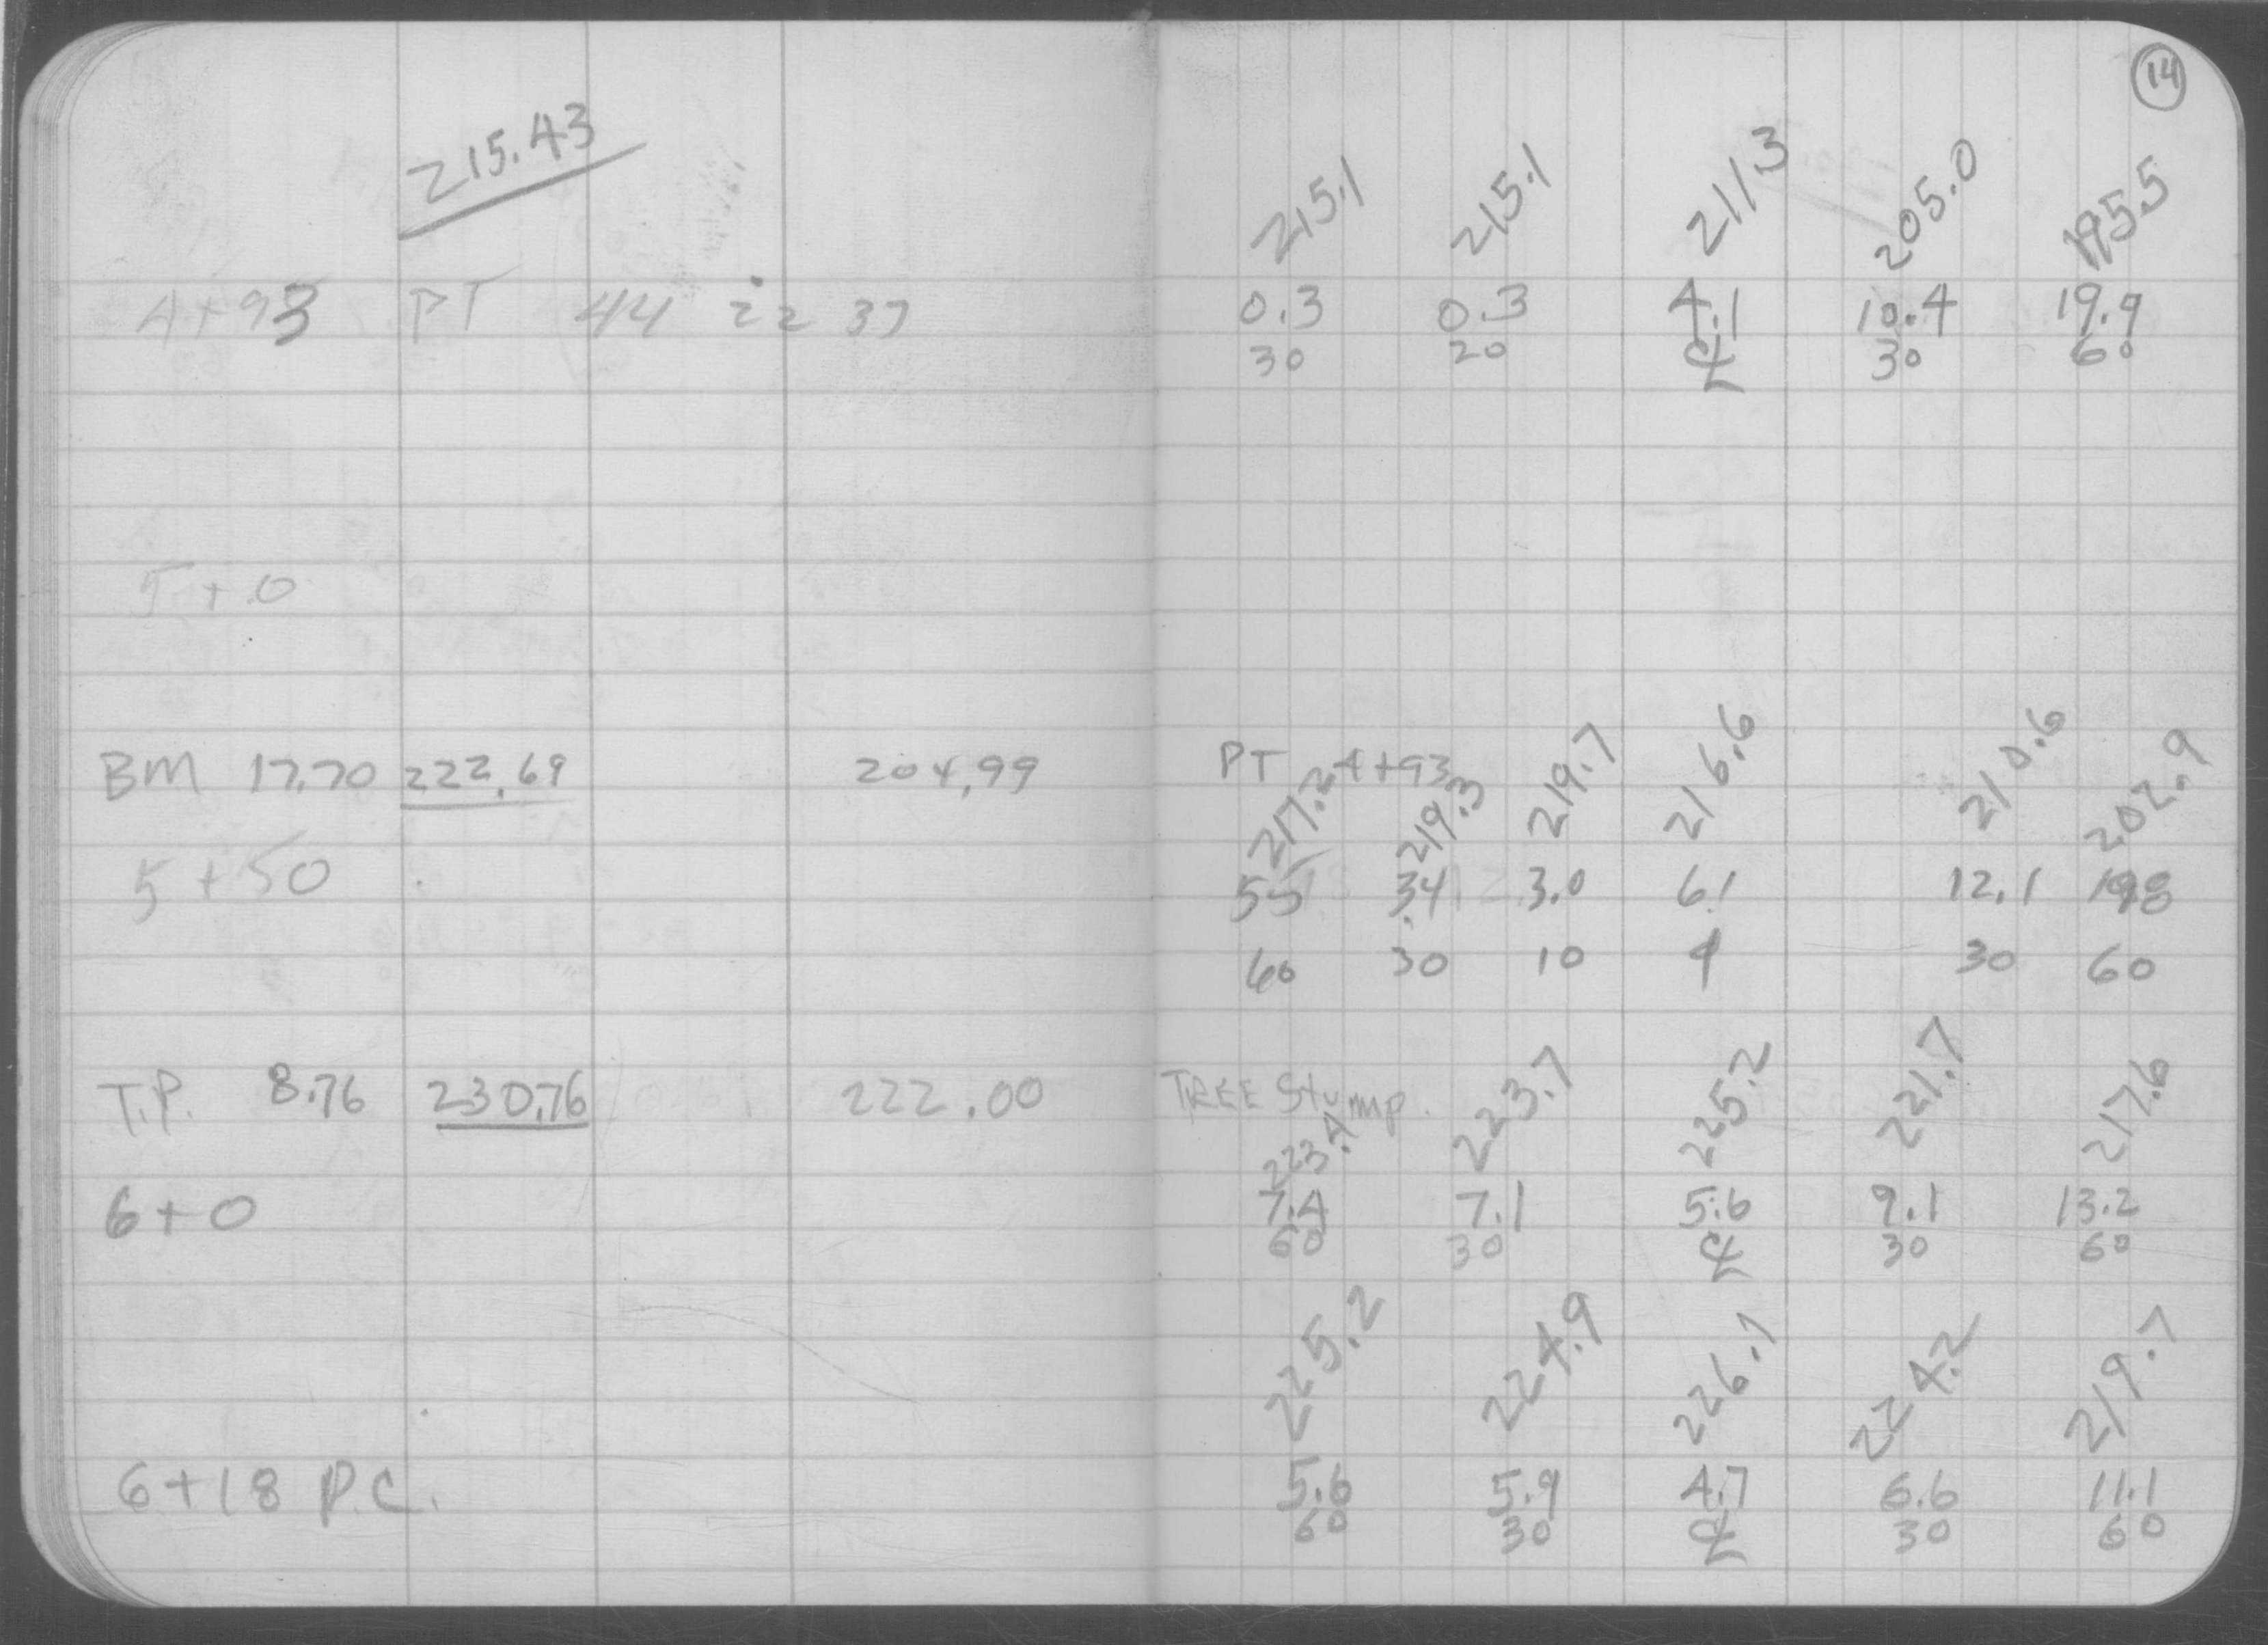 14
215.43
215.1 215.1 211.3 205.0 195.5
4+93 PT 44 22 37 0.3 0.3 4.1 10.4 19.9
30 20 ℄ 30 60
5+0
BM 17.70 222.69 204.99 PT 4+93
217.2 219.3 219.7 216.6 210.6 202.9
5+50 55 3.4 3.0 6.1 12.1 198
60 30 10 ℄ 30 60
T.P. 8.76 230.76 222.00 TREE Stump.
223.4 223.7 225.2 221.7 217.6
6+0 7.4 7.1 5.6 9.1 13.2
60 30 ℄ 30 60
225.2 224.9 226.1 224.2 219.7
6+18 P.C. 5.6 5.9 4.7 6.6 11.1
60 30 ℄ 30 60